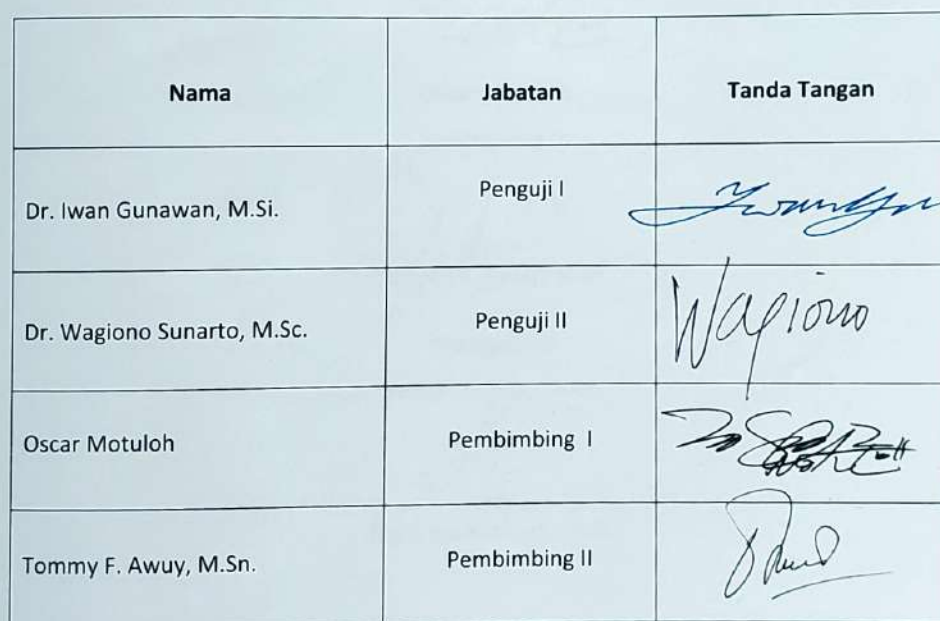 Nama Jabatan Tanda Tangan
Dr. Iwan Gunawan, M.Si. Penguji I
Dr. Wagiono Sunarto, M.Sc. Penguji II Wagiono
Oscar Motuloh Pembimbing I
Tommy F. Awuy, M.Sn. Pembimbing II